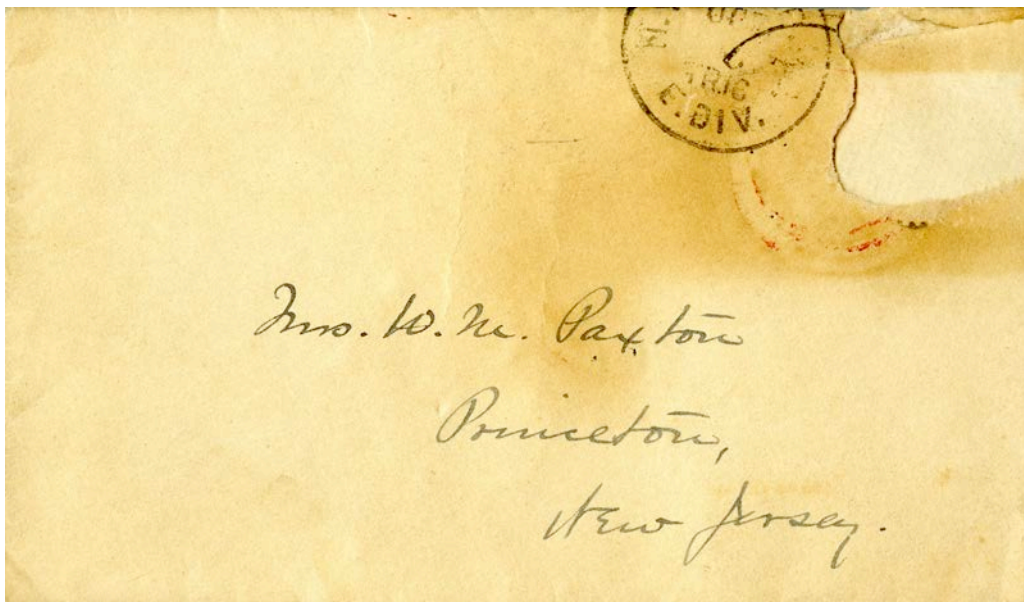 TR16
E.DIV.
Mrs. W. M. Paxton
Princeton,
New Jersey.